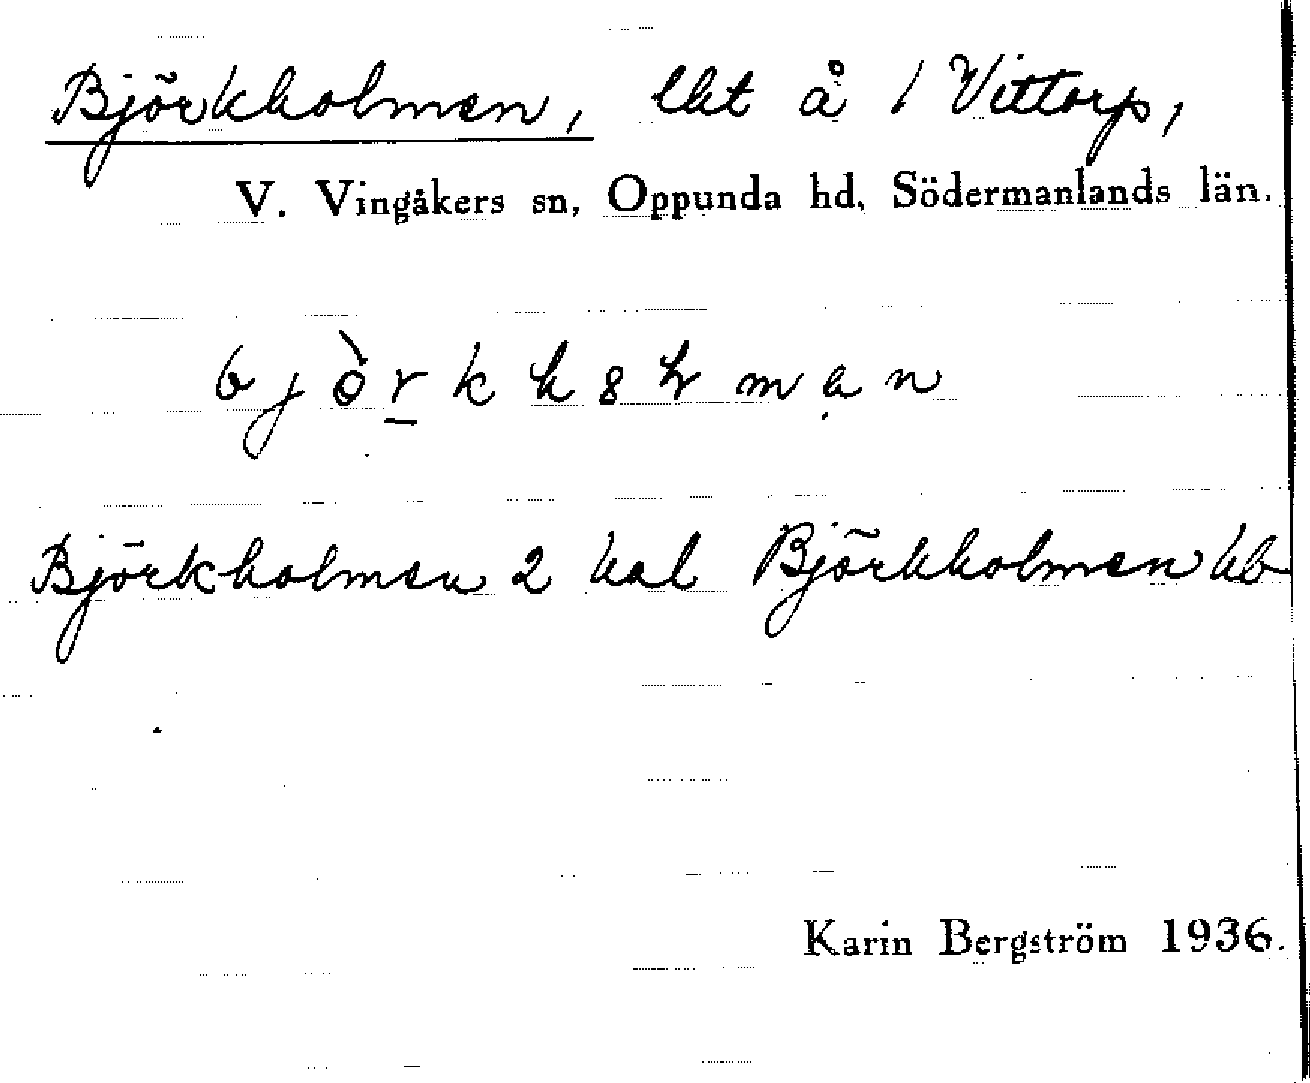 Björkholmen, lht å 1 Vittorp,
V. Vingåkers sn, Oppunda hd, Södermanlands län.
Björkholmen 2 hal Björkholmen hb
Karin Bergström 1936.